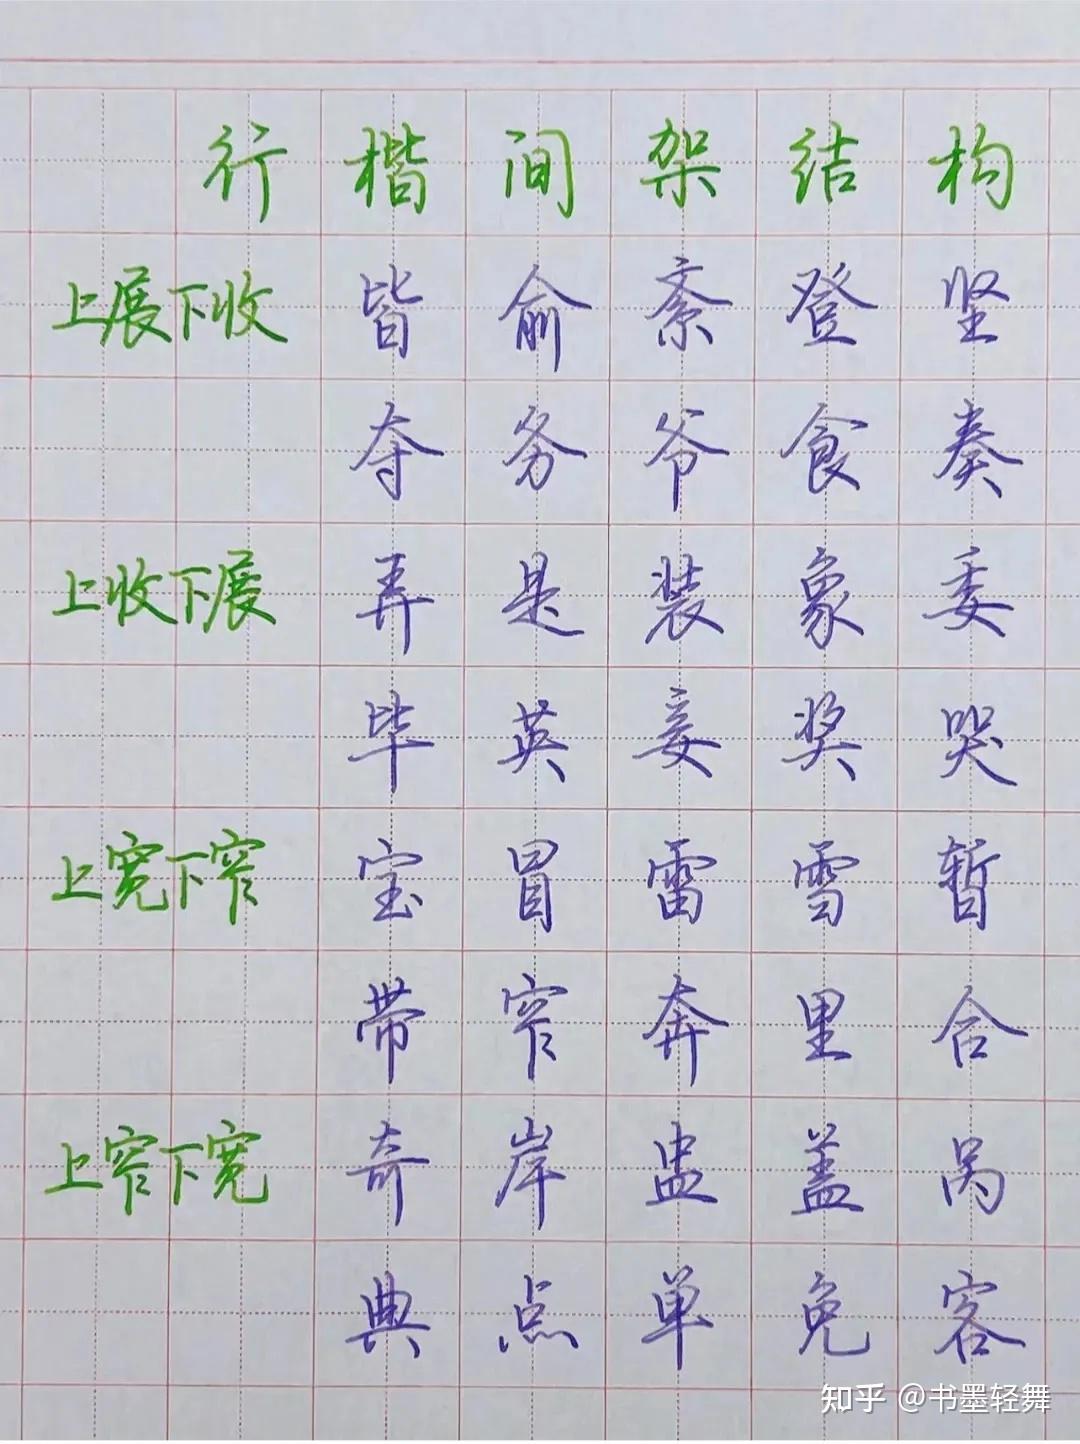 行楷间架结构
上展下收 皆 俞 紊 登 坚
夺 务 爷 食 奏
上收下展 弄 是 装 象 委
毕 英 妾 奖 哭
上宽下窄 宝 冒 雷 雪 暂
带 窄 奔 里 合
上窄下宽 奇 岸 盅 盖 呙
典 点 单 免 客
知乎 @书墨轻舞